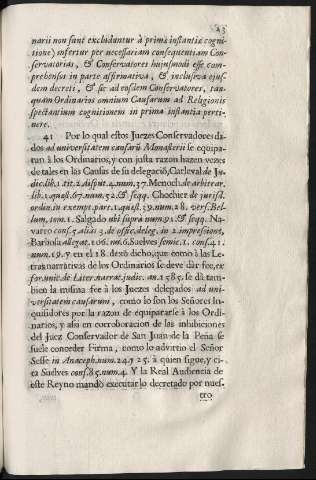 23
narii non sunt excludantur à prima instantiæ cogni-
tione) infertur per necessariam consequentiam Con-
servatorias, & Conservatores hujusmodi esse com-
prehensos in parte affirmativa, & inclusiva ejus-
dem decreti, & sic ad eosdem Conservatores, tan-
quam Ordinarios omnium Causarum ad Religionis
spectantium cognitionem in prima instantia perti-
nere.
41 Por lo qual estos Juezes Conservadores da-
dos ad universitatem causarũ Monasterii se equipa-
ran à los Ordinarios, y con justa razon hazen vezes
de tales en las Causas de su delegació, Carleval de Ju-
dic. lib. 1. tit. 2. disput. 4. num. 37. Menoch. de arbitrar.
lib. 1. quæst. 67. num. 52. & seqq. Chochier de jurisd.
ordin. in exempt. par. 1. quæst. 39. num. 28. vers. Bel-
lum, tom. 1. Salgado ubi supra num. 91. & seqq. Na-
varro cons. 5. aliàs 3. de offic. deleg. in 2. impressiones,
Barbosa allegat. 106. nu. 6. Suelves semic. 1. cons. 41.
num. 19. y en el 18. dexò dicho, que como à las Le-
tras narrativas de los Ordinarios se deve dàr fee, ex
for. unic. de Liter. narrat. judic. an. 1585. se dà tam-
bien la misma fee à los Juezes delegados ad uni-
versitatem causarum, como lo son los Señores In-
quisidores por la razon de equipararse à los Ordi-
narios, y assi en corroboracion de las inhibiciones
del Juez Conservador de San Juan de la Peña se
suele conceder Firma, como lo advirtiò el Señor
Sesse in Anaceph. num. 24. y 25. à quien sigue, y ci-
ta Suelves cons. 85. num. 4. Y la Real Audiencia de
este Reyno mandò executar lo decretado por nues-
tro